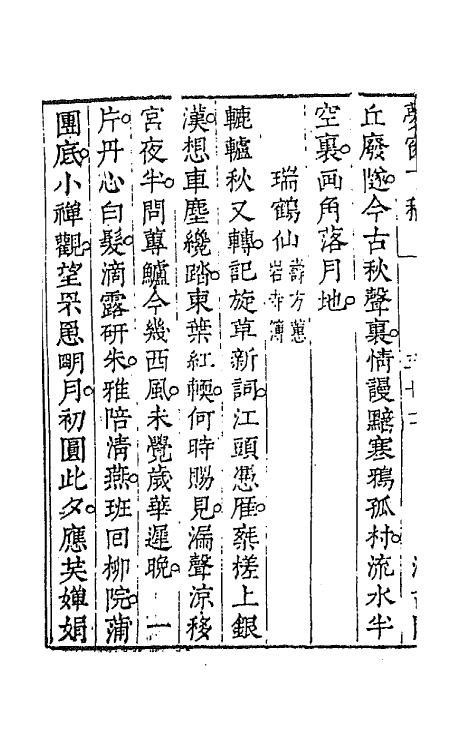 丘廢隧今古秋聲裏情謾黯寒鴉孤村流水半
空裏画角落月地
瑞鶴仙 壽方蕙岩寺簿
轆轤秋又轉記旋草新詞江頭憑雁乘槎上銀
漢想車塵纔踏東華紅輭何時賜見漏聲涼移
宮夜半問蓴鱸今幾西風未覺歲華遲晚 一
片丹心白髮滴露研朱雅陪清燕班回柳院蒲
團底小禪觀望罘罳明月初圓此夕應共嬋娟